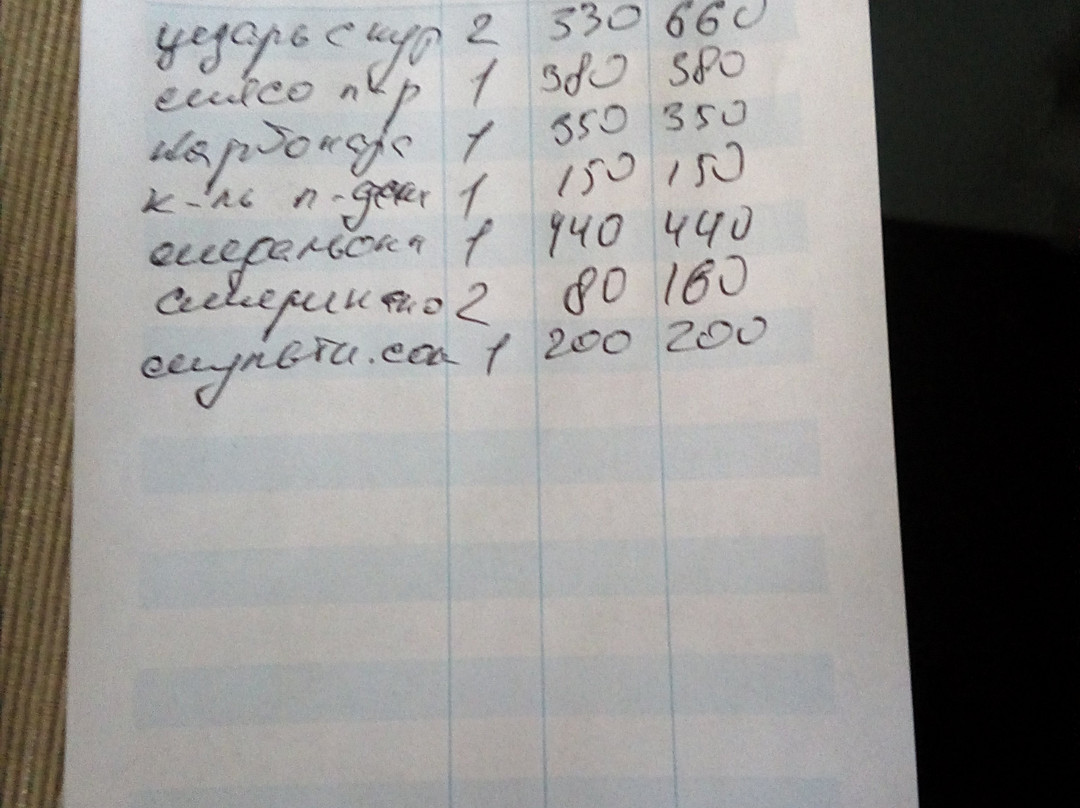 цезарь с кур 2 330 660
мясо п кр 1 380 380
карбонара 1 350 350
к-ль п- 1 150 150
1 440 440
2 80 160
мульти.сок 1 200 200